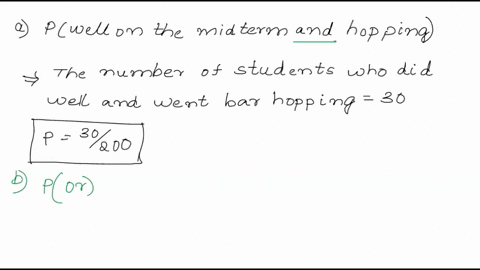 a) P(well on the midterm and hopping)
⇒ The number of students who did
well and went bar hopping = 30
P = 30/200
b) P(or)